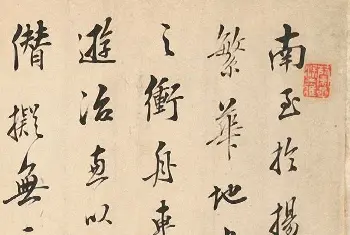 南至於揚
繁華地
之衝舟車
遊冶直以
僭擬無